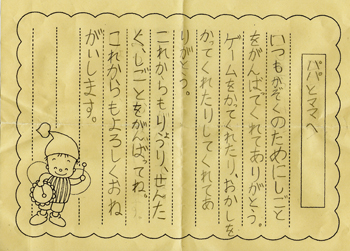 パパとママへ
いつもかぞくのためにしごと
をがんばてくれてありがとう。
ゲームをかてくれたり、おかしを
かってくれたりしてくれてあ
りがとう。
これからもりょうり、せんた
く、しごとをがんばってね。
これからもよろしくおね
がいします。